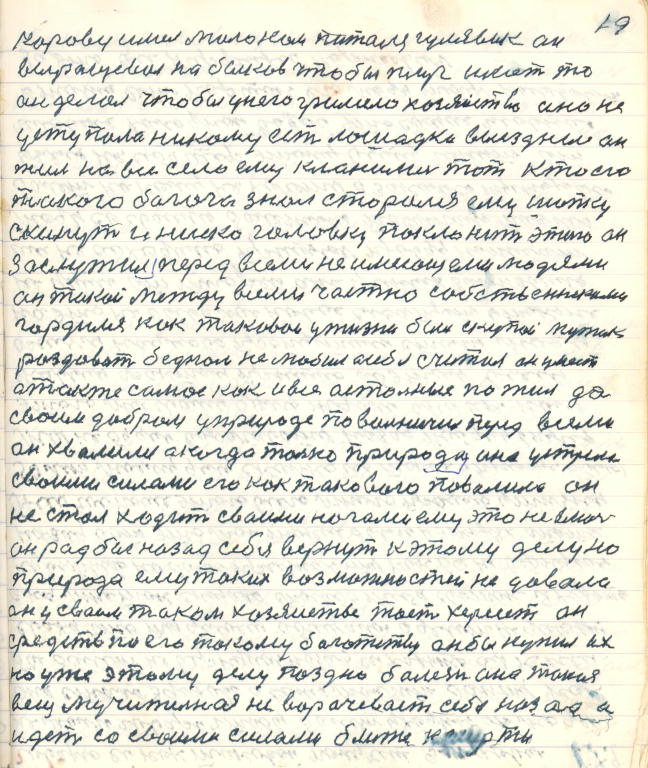 19
корову имел молоком питался гулявик он
выращевал на быков чтобы плуг имет то
он делал чтобы у него гримело хозяйство оно не
уступала никому ест лошадка выездние он
жил на все село ему кланились тот кто его
такого богоча знал старался ему шопку
скинут и ниско головку поклонит этого он
заслужил перед всеми не имеющеми людями
он такой между всеми частно собственниками
гордился как таковой у жизни был скупой мужик
роздоват бедном не любил а себя считал он умест
а также самое как и все астолные пожил да
своим добром у природе по величии перед всеми
он хвалили а когда только природа она у утрене
своими силами его как такового повалила он
не стал ходит своими ногами ему это не
он рад бы назад себя вернут к этому делу но
природа ему таких возможностей не довала
он у своем таком хозяйстве тает хереет он
средств по его такому боготству он бы купил их
но уже этому делу поздно болезн она такая
вещ мучителная не ворачевает себя назад а
идет со своими силами ближе к смерти